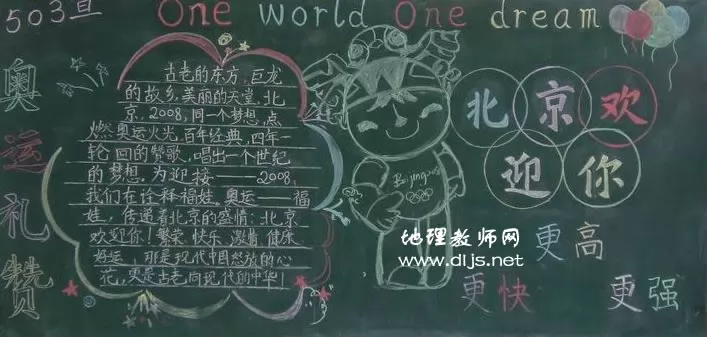 503宣
One world One dream
奥运礼赞
古老的东方,巨龙
的故乡,美丽的天堂,北
京,2008,同一个梦想,点
燃奥运火光,百年经典,四年一
轮回的赞歌,唱出一个世纪
的梦想。为迎接——2008,
我们在诠释福娃。奥运——福
娃,传递着北京的盛情:北京
欢迎你!繁荣、快乐、激情、健康、
好运,那是现代中国怒放的心
花,更是古老向现代的中华!
Beijing 2008
北京欢
迎你
地理教师网
www.dljs.net
更高
更快
更强